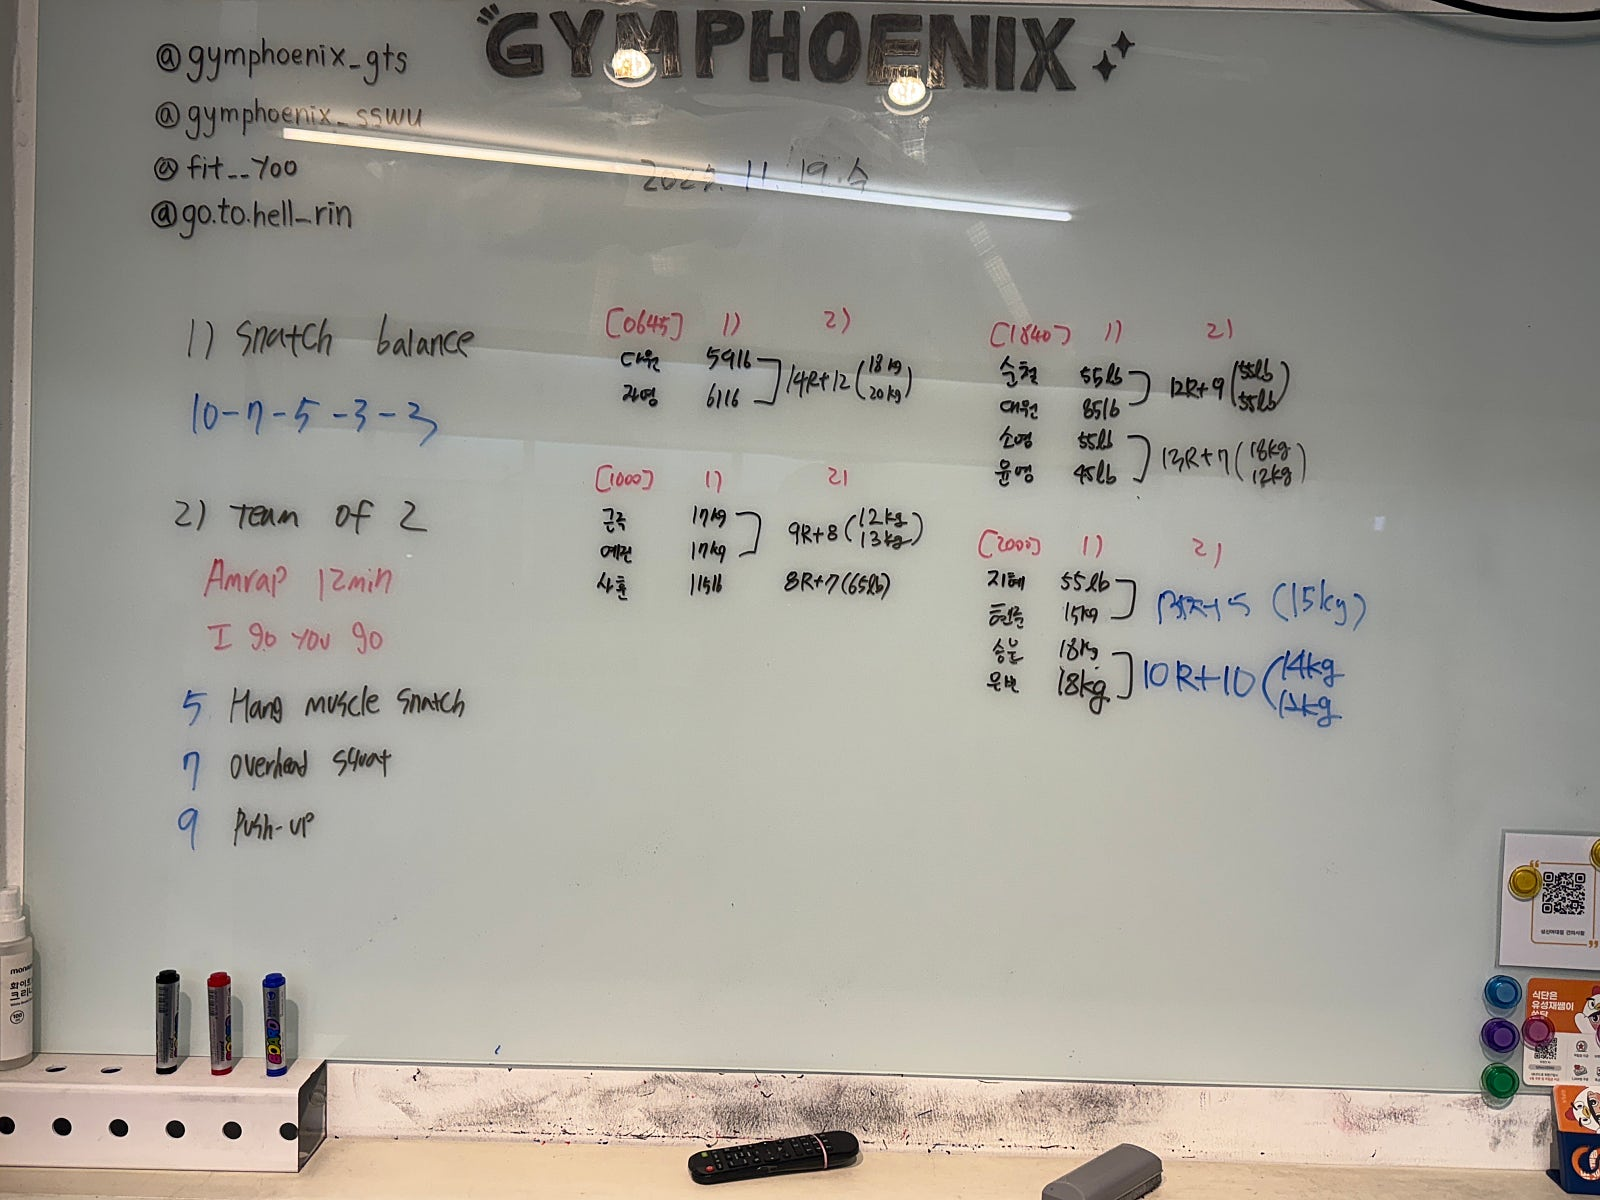 GYMPHOENIX
@gymphoenix_gts
@gymphoenix_sswu
@fit__yoo
@go.to.hell_rin
2025. 11. 19. 수
1) Snatch balance
10-7-5-3-3
2) Team of 2
Amrap 12min
I go you go
5 Hang muscle snatch
7 overhead squat
9 Push-up
[0645] 1) 2)
다원 59lb
14R+12 (18kg
20kg)
61lb
[1000] 1) 2)
17kg
9R+8 (12kg
13kg)
17kg
사훈 115lb 8R+7 (65lb)
[1840] 1) 2)
순철 55lb
12R+9 (55lb
55lb)
대원 85lb
소영 55lb
13R+7 (18kg
12kg)
윤영 45lb
[2000] 1) 2)
지혜 55lb
(15kg)
15kg
18kg
10R+10 (14kg
12kg
18kg
화이트
크리너
성신여대점 건의사항
식단은
유성재쌤이
쏜닭